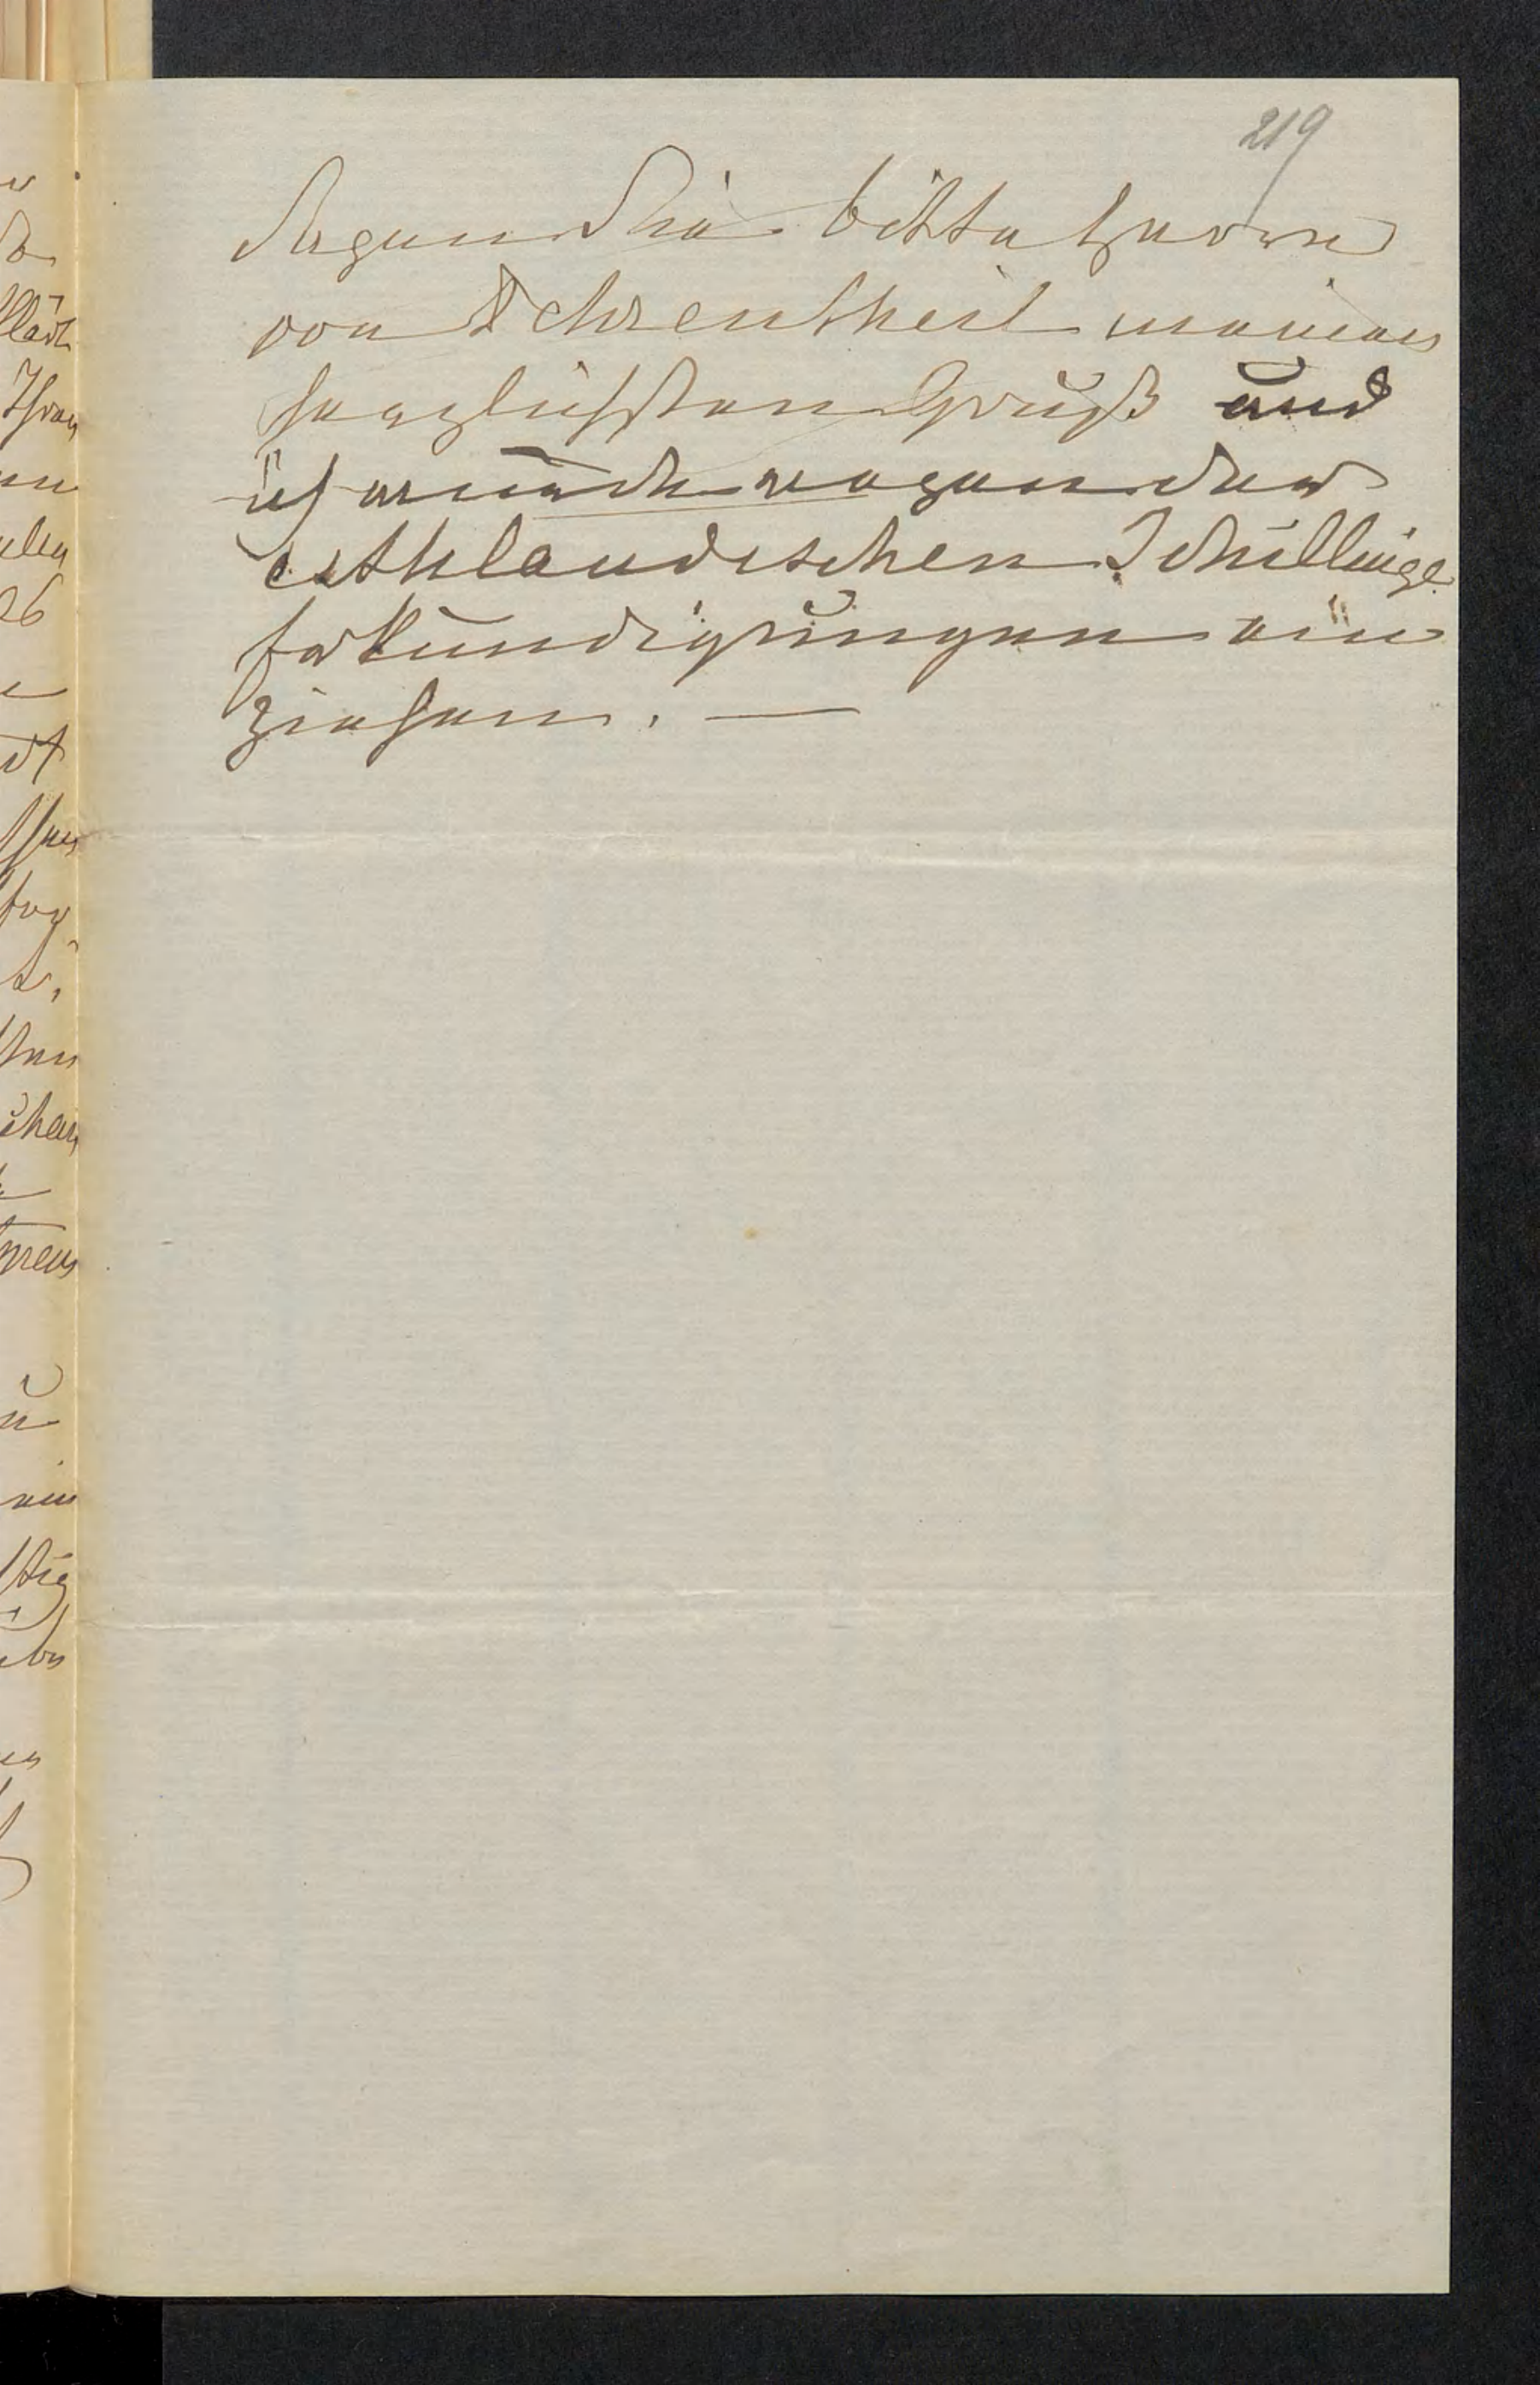 219
Sagen Sie bitte Herrn
von Ehrentheil meinen
herzlichsten Gruß und
ich würde wegen der
esthlandischen Schillinge
Erkundigungen ein
ziehen. —